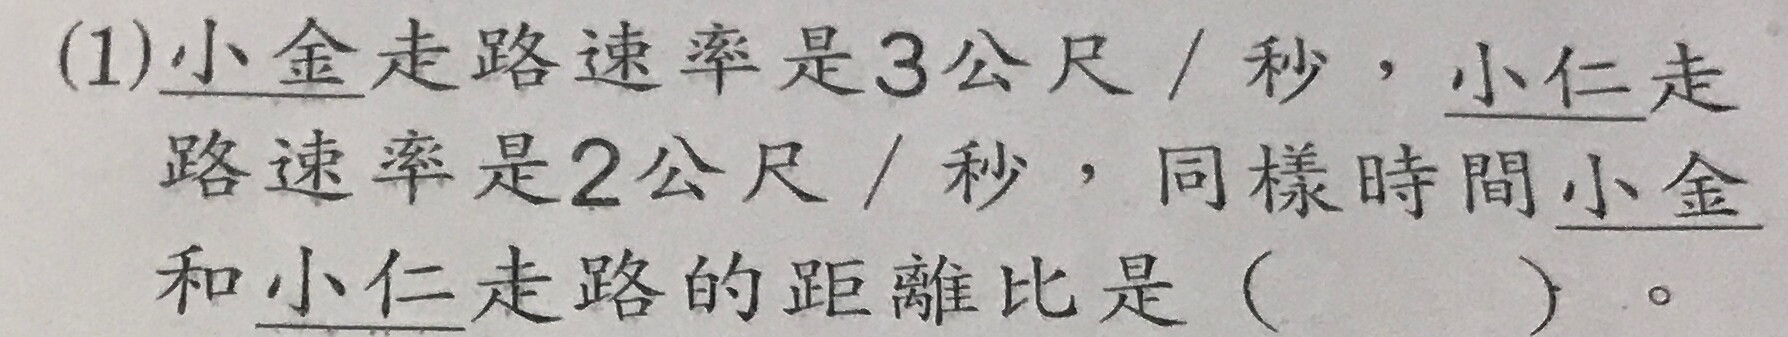 (1)小金走路速率是3公尺/秒，小仁走
路速率是2公尺/秒，同樣時間小金
和小仁走路的距離比是(　　)。